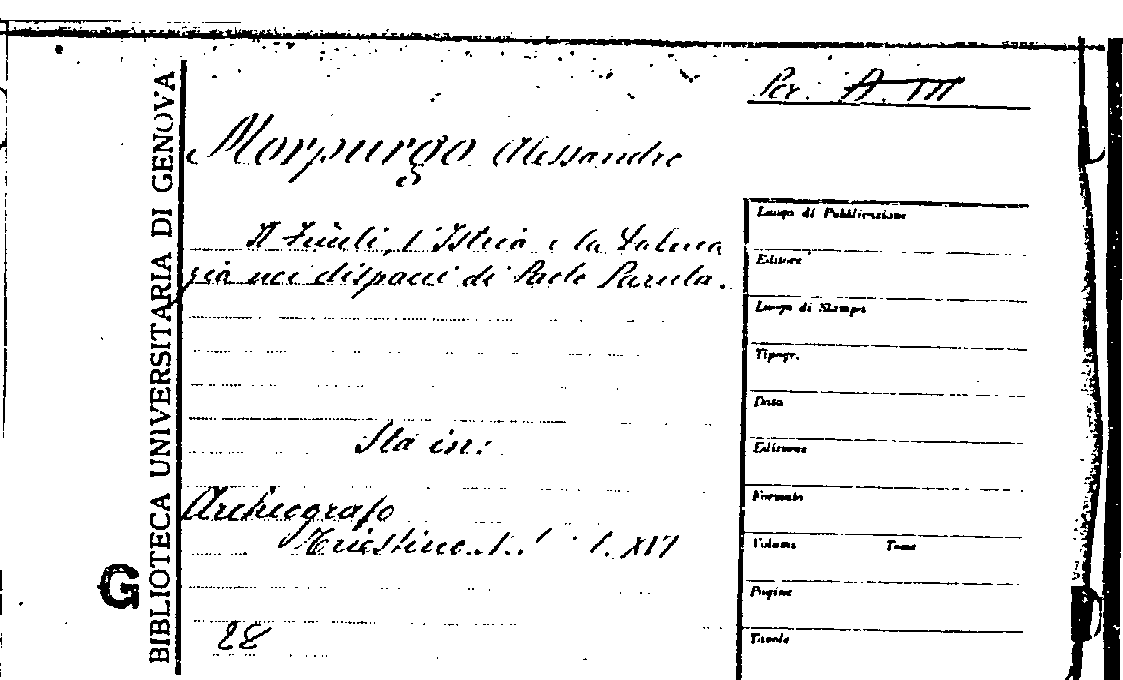 Per. A. III
Morpurgo Alessandro
Il Friuli, l'Istria e la Dalma
zia nei dispacci di Paolo Paruta.
Sta in:
Archeografo
Triestino
28
Luogo di Pubblicazione
Editore
Luogo di Stampa
Tipogr.
Data
Edizione
Formato
Volume Tomo
Pagine
Tavole
BIBLIOTECA UNIVERSITARIA DI GENOVA
G